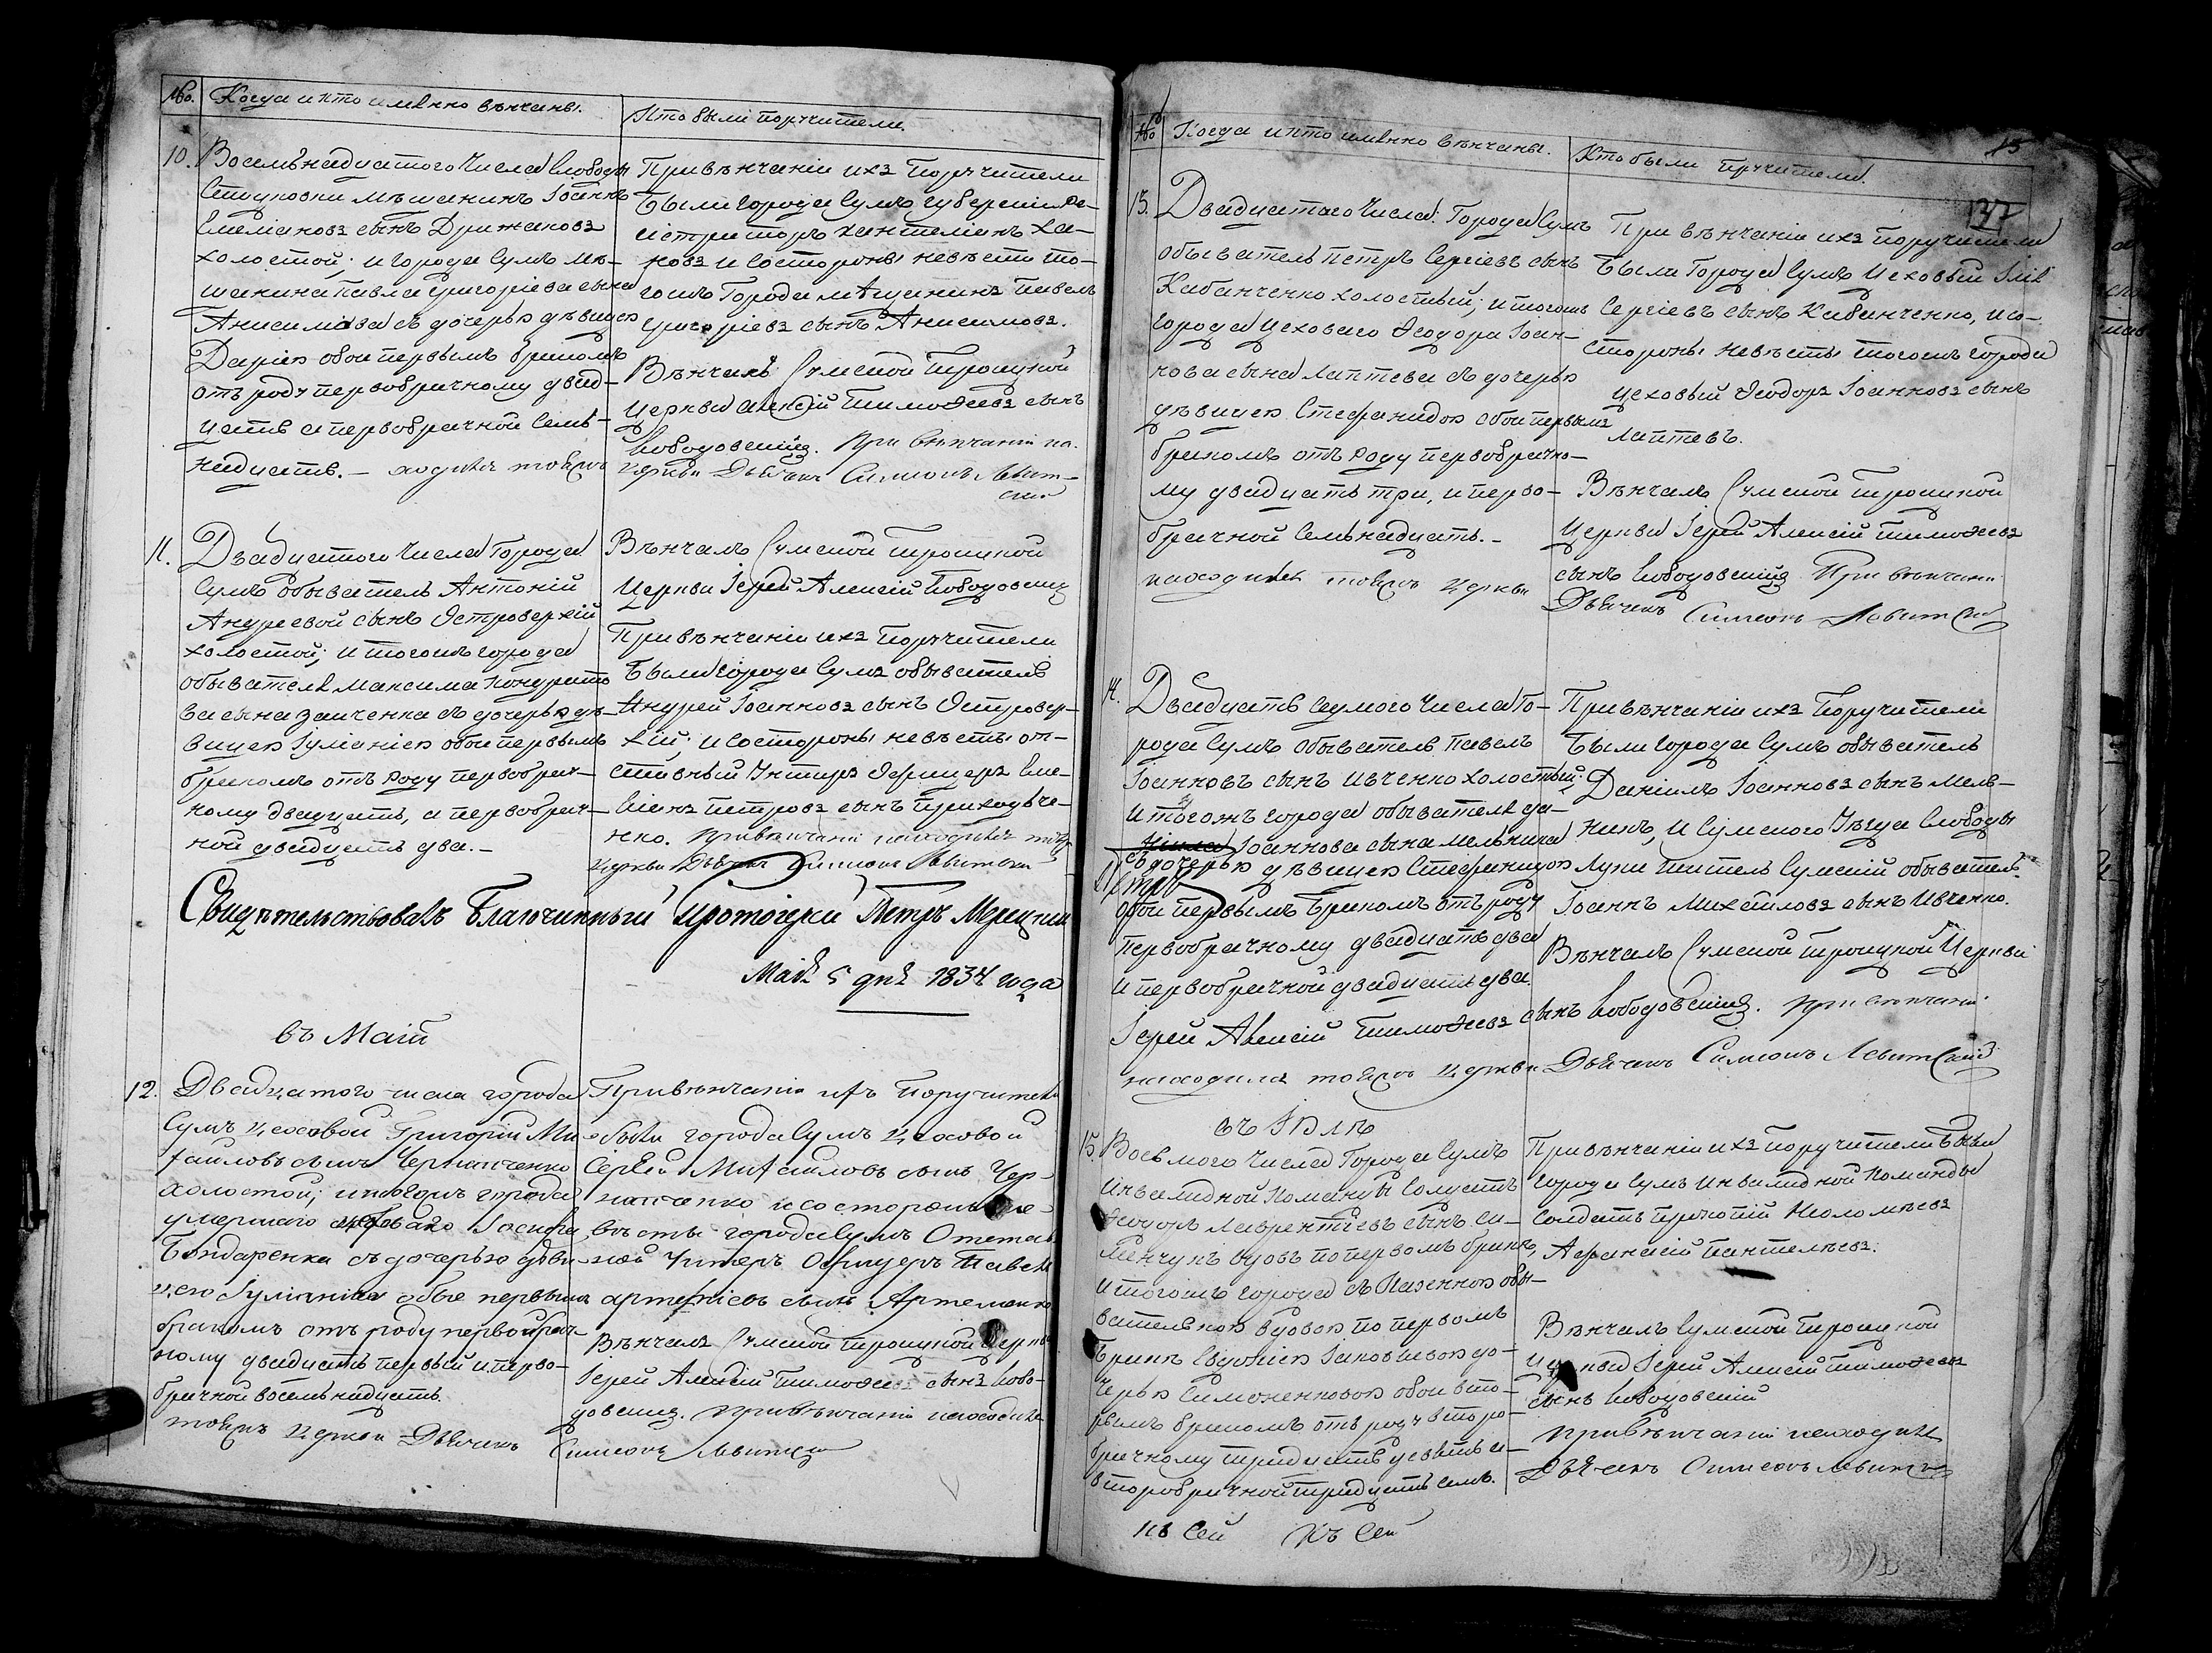 №. Когда и кто именно вѣнчаны.
Кто были поручители.
10. Восемьнадцатого Числа Слободы
мѣщанинъ Іоаннъ
Емеліановъ сынъ Дрижаковъ
холостой; и города Сумъ мѣ-
щанина Павла Григоріева сына
Анисимова съ дочерью дѣвицею
Даріею обои первымъ бракомъ
отъ роду первобрачному двад-
цать а первобрачной семь-
надцать. –
При вѣнчаніи ихъ Поручители
Были города Сумъ губернскій Ре-
гистраторъ
и Состороны невѣсты то-
гожъ Города мѣщанинъ Павелъ
Григоріевъ сынъ Анисимовъ.
Вѣнчалъ Сумской Троицкой
Церкви Алексій Тимоѳеевъ сынъ
при вѣнчаніи на-
ходился тоежъ церкви Дьячекъ Симеонъ Левит-
скій
11. Двадцатого Числа Города
Сумъ обыватель Антоній
Андреевой сынъ Островерхій
холостой; и тогожъ города
обывателя Максима Кондрато
ва сына Заиченка съ дочерью дѣ-
вицею Іуліаніею обои первымъ
бракомъ отъ роду первобрач-
ному двадцать, а первобрач-
ной двадцать два. –
Вѣнчалъ Сумской Троицкой
Церкви Іерей Алексій
При вѣнчаніи ихъ Поручители
Были города Сумъ обыватель
Андрей Іоанновъ сынъ Островер-
хій; и Состороны невѣсты от-
ставный Унтиръ Офицеръ Еме-
ліанъ Петровъ сынъ Приходьче-
нко. При вѣнчаніи находился тоежъ
Церкви Дьячекъ Симеонъ Левитскій
Свидѣтельствовалъ Благочинный Протоіерей Петръ Мерецкій
Маія 5 дня 1834 года
въ Маіи
12. Двадцатого числа города
Сумъ Цеховой Григорій Ми
хаиловъ сынъ
холостой; и тогожъ города
умершаго цеховаго Іосифа
Бондаренка съ дочерью дѣви-
цею Іуліаніею обое первымъ
бракомъ отъ роду первобрач-
ному двадцать первый и перво-
брачной восемьнадцать.
При вѣнчаніи ихъ Поручители
были города Сумъ Цеховой
Сергѣй Михаиловъ сынъ Чер-
и состороны не-
вѣсты города Сумъ Отстав-
ной Унтеръ Офицеръ Павелъ
Артеміевъ сынъ Артеменко
Вѣнчалъ Сумской Троицкой Церкви
Іерей Алексій Тимоѳеевъ сынъ
При вѣнчаніи находился
тоежъ церкви Дьячекъ Симеонъ Левитскій
№ Когда и кто именно вѣнчаны.
Кто были пручители.
15
137
13. Двадцатаго Числа: Города Сумъ
обыватель Петръ Сергіевъ сынъ
Кабанченко холостый; и тогожъ
города цеховаго Ѳеодора Іоан-
нова сына Лаптева съ дочерью
дѣвицею Стефанидою обои первымъ
бракомъ отъ роду первобрачно-
му двадцать три, и перво-
брачной семьнадцать. –
При вѣнчаніи ихъ поручители
Были Города Сумъ Цеховый
Сергіевъ сынъ Кабанченко, и со-
стороны невѣсты тогожъ города
цеховый Ѳеодоръ Іоанновъ сынъ
Лаптевъ.
Вѣнчалъ Сумской Троицкой
Церкви Іерей Алексій Тимоѳеевъ
сынъ При вѣнчаніи
находился тоежъ церкви
Дьячекъ Симеонъ Левитскій
14. Двадцать седмого Числа Го-
рода Сумъ обыватель Павелъ
Іоанновъ сынъ Ивченко холостый;
и тогожъ города обывателя Да-
ніила Іоаннова сына Мельника
съ дочерью дѣвицею Стефанидою
обои первымъ бракомъ отъ роду
первобрачному двадцать два
и первобрачной двадцать два.
При вѣнчаніи ихъ Поручители
Были города Сумъ обыватель
Даніилъ Іоанновъ сынъ Мель-
никъ, и Сумского Уѣзда Слободы
Луки житель Сумскій обыватель
Іоаннъ Михаиловъ сынъ Ивченко.
Вѣнчалъ Сумской Троицкой Церкви
Іерей Алексій Тимоѳеевъ сынъ при вѣнчаніи
находился тоежъ церкви Дьячекъ Симеонъ Левитскій
въ Іюлѣ
15. Восьмого Числа Города Сумъ
Инвалидной Команды Солдатъ
Ѳеодоръ Лаврентіевъ сынъ Си-
вдовъ по первомъ бракѣ,
и тогожъ города съ Казенною обы-
вательскою вдовою по первомъ
Бракѣ Евдокіею Іаковлевою до-
черью Симоненковою обои вто-
рымъ бракомъ отъ роду второ-
брачному тридцать девять а
второбрачной тридцать семь.
При вѣнчаніи ихъ поручители Были
города Сумъ Инвалидной Команды
солдатъ Прокопій
Афанасій Пантелѣевъ.
Вѣнчалъ Сумской Троицкой
Церкви Іерей Алексій Тимоѳеевъ
сынъ
При вѣнчаніи находился
Дьячекъ Симеонъ Левитскій
Къ Сей Къ Сей